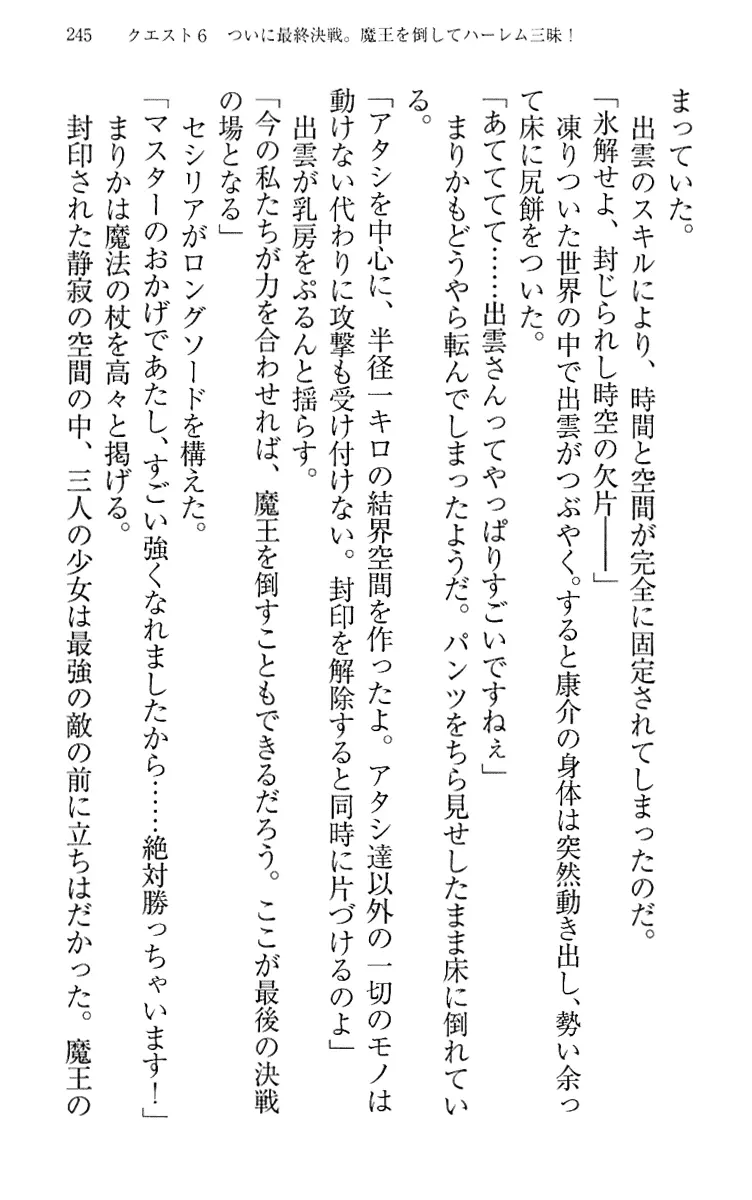 245　クエスト６　ついに最終決戦。魔王を倒してハーレム三昧！
まっていた。
　出雲のスキルにより、時間と空間が完全に固定されてしまったのだ。
「氷解せよ、封じられし時空の欠片――」
　凍りついた世界の中で出雲がつぶやく。すると康介の身体は突然動き出し、勢い余っ
て床に尻餅をついた。
「あてててて……出雲さんってやっぱりすごいですねぇ」
　まりかもどうやら転んでしまったようだ。パンツをちら見せしたまま床に倒れてい
る。
「アタシを中心に、半径一キロの結界空間を作ったよ。アタシ達以外の一切のモノは
動けない代わりに攻撃も受け付けない。封印を解除すると同時に片づけるのよ」
　出雲が乳房をぷるんと揺らす。
「今の私たちが力を合わせれば、魔王を倒すこともできるだろう。ここが最後の決戦
の場となる」
　セシリアがロングソードを構えた。
「マスターのおかげであたし、すごい強くなれましたから……絶対勝っちゃいます！」
　まりかは魔法の杖を高々と掲げる。
　封印された静寂の空間の中、三人の少女は最強の敵の前に立ちはだかった。魔王の